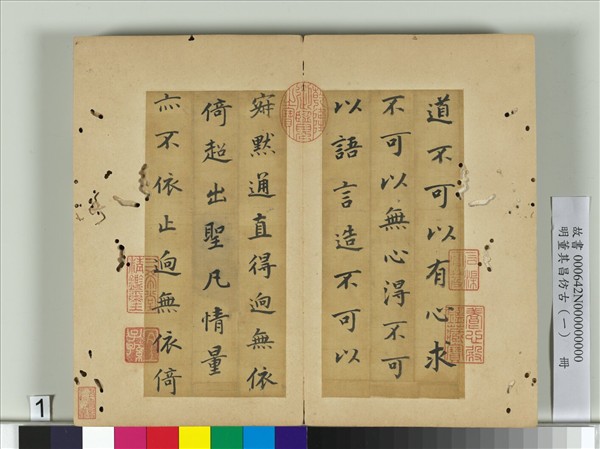 道不可以有心求
不可以無心得不可
以語言造不可以
寂默通直得迥無依
倚超出聖凡情量
亦不依止迥無依倚
故書 000642N000000000
明董其昌仿古(一) 冊
1